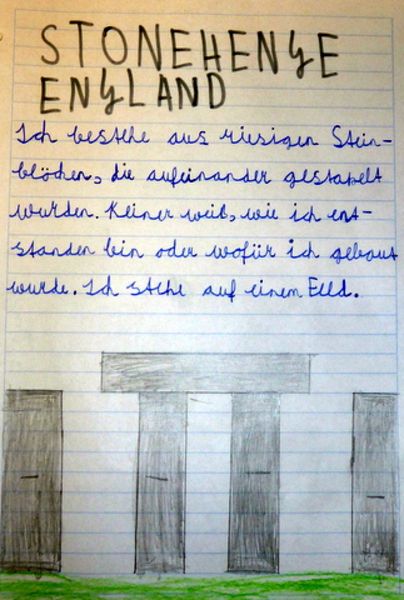 STONEHENGE
ENGLAND
Ich bestehe aus riesigen Stein-
blöcken, die aufeinander gestapelt
wurden. Keiner weiß, wie ich ent-
standen bin oder wofür ich gebaut
wurde. Ich stehe auf einem Feld.